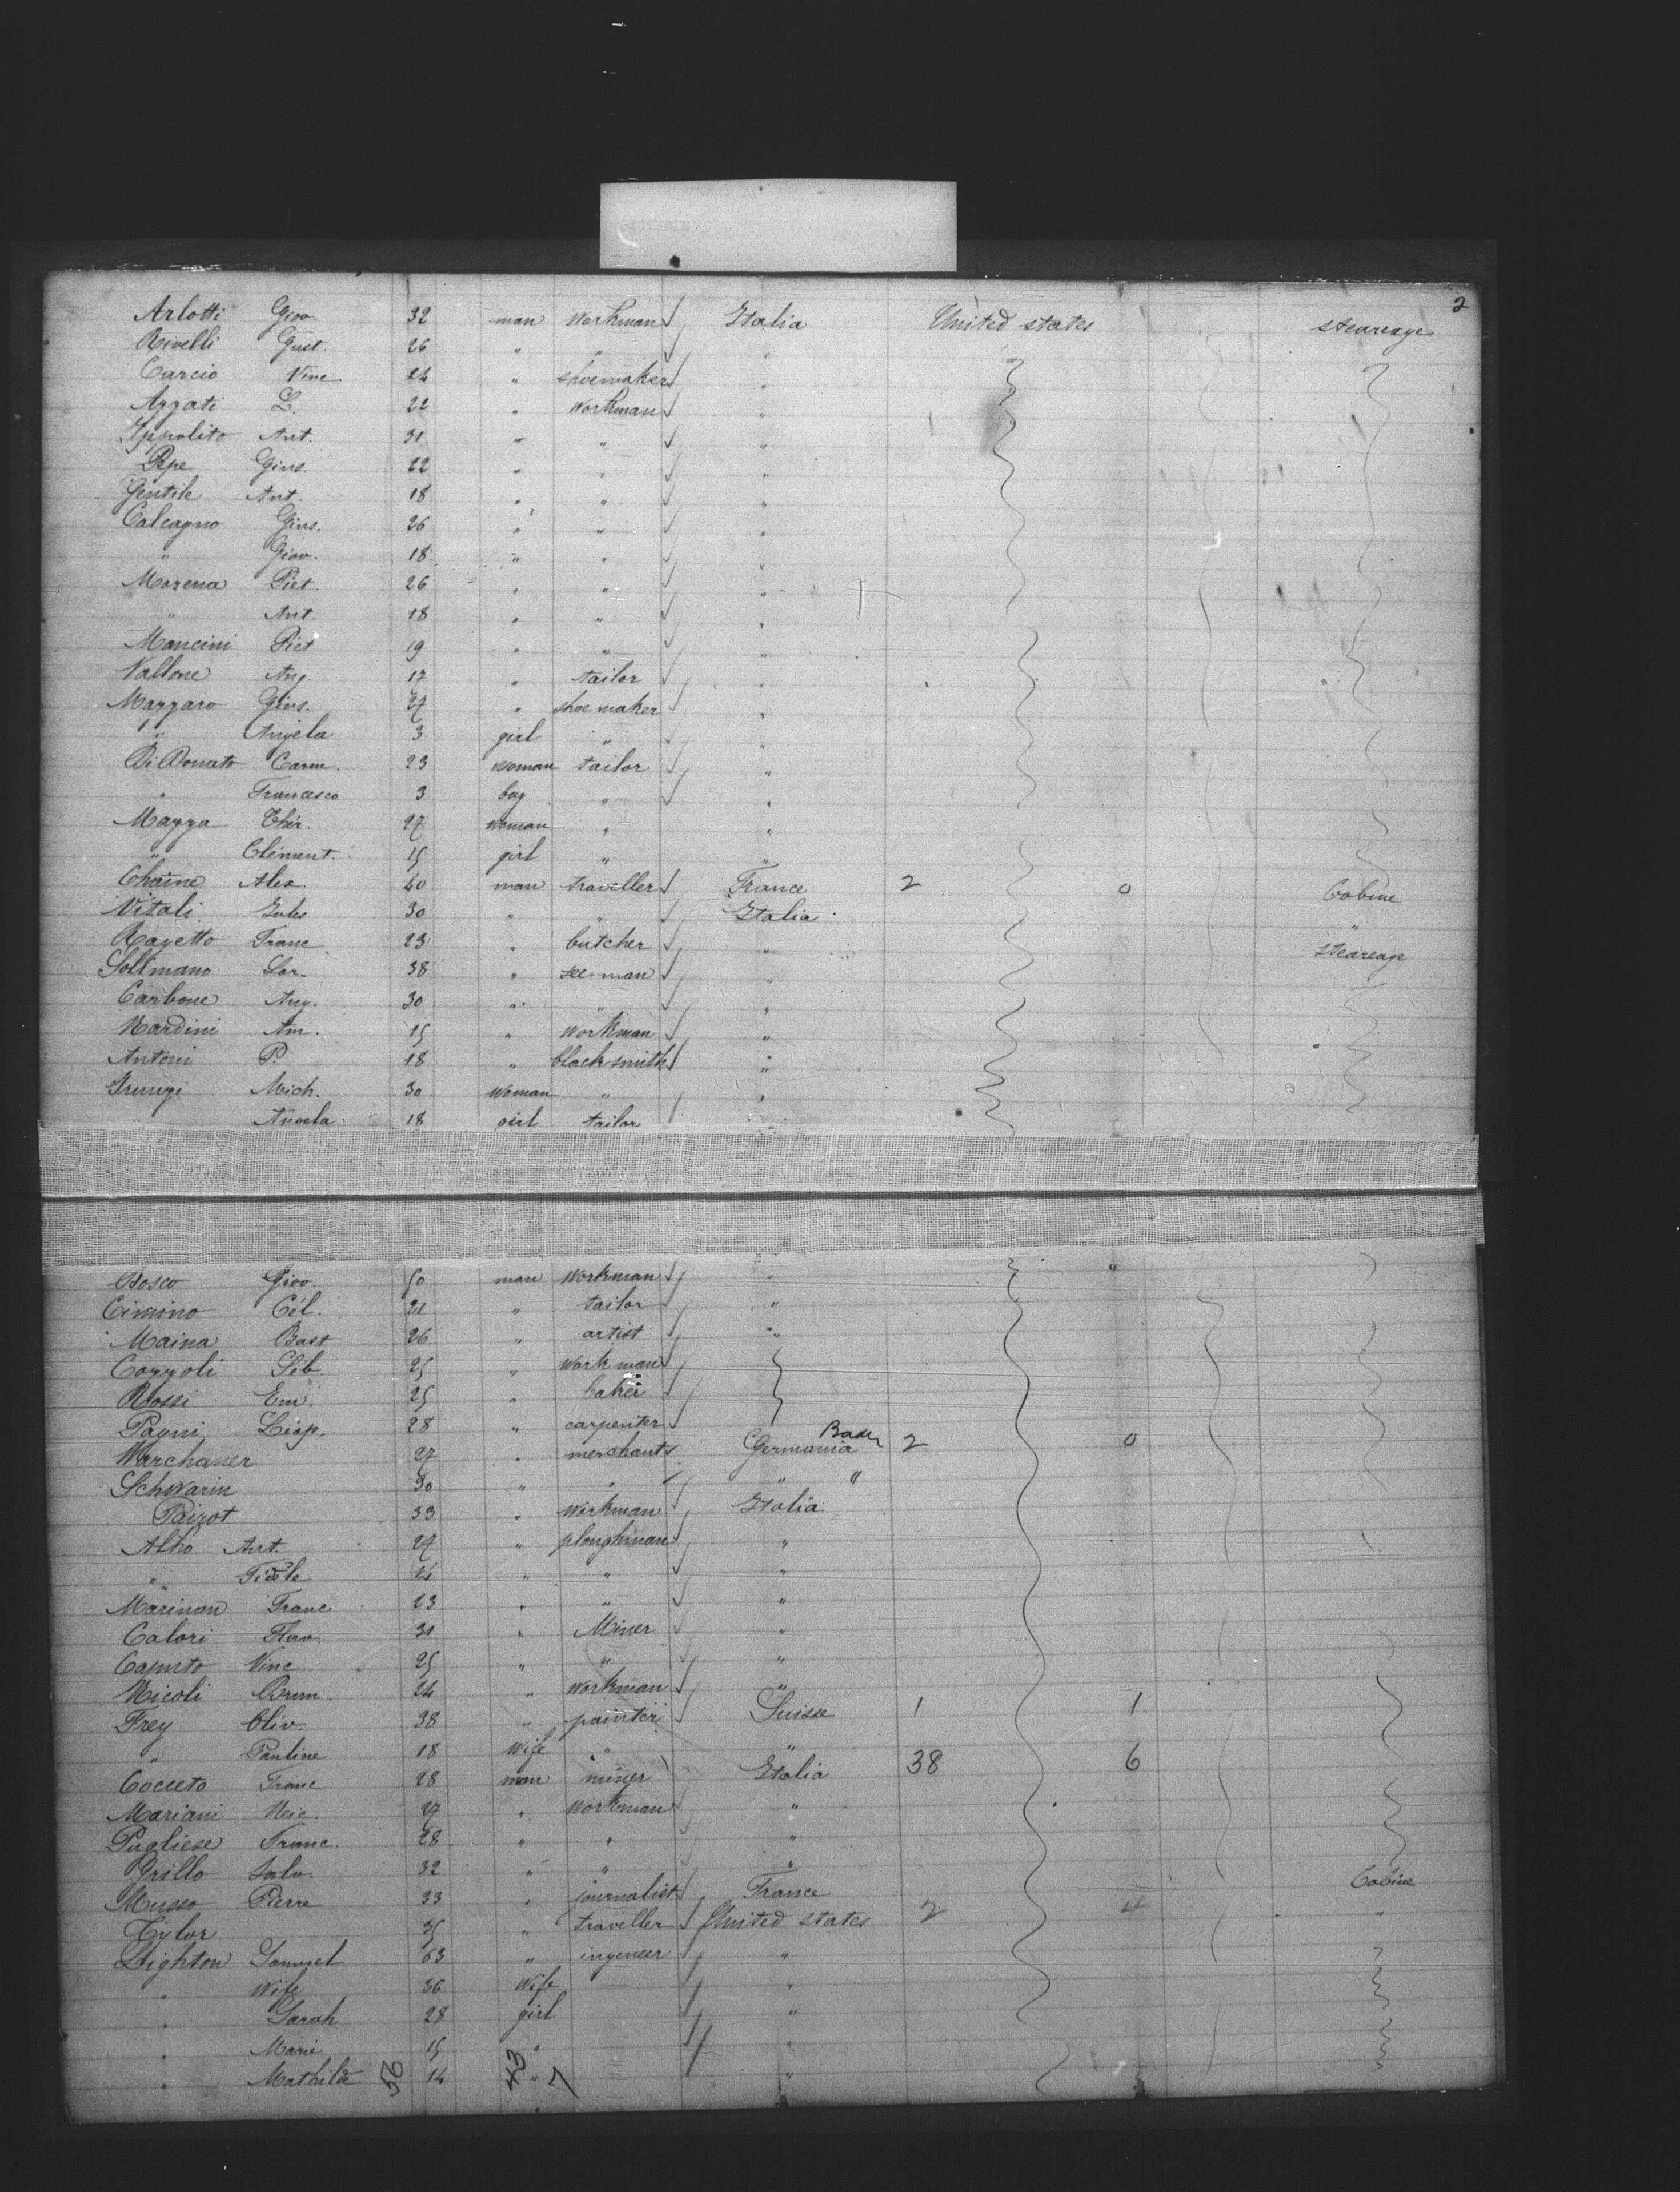 2
Arlotti Giov. 32 man Workman Italia United states steareage
Rivelli Gust. 26 " " "
Curcio Vinc 24 " shoemaker "
Azzati L. 22 " Workman "
Ippolito Ant. 31 " " "
Pepe Gius. 22 " " "
Gentile Ant. 18 " " "
Calcagno Gius. 26 " " "
" Giov. 18 " " "
Morena Piet. 26 " " "
" Ant. 18 " " "
Mancini Piet 19 " " "
Vallone Ang. 17 " tailor "
Mazzaro Gius. 27 " shoe maker "
" Angela 3 girl " "
Di Donato Carm. 23 woman tailor "
" Francesco 3 boy " "
Mazza Thér. 27 woman " "
" Clément. 15 girl " "
Chaine Alex. 40 man traveller France 2 0 Cabine
Vitali Jules 30 " " Italia "
Rayetto Franc 23 " butcher " steareage
Sollmano Lor. 38 " see-man "
Carbone Ang. 30 " " "
Nardini Am. 15 " workman "
Antoni P. 18 " blacksmith "
Mich. 30 woman " "
Angela 18 girl tailor
Bosco Giov. 50 man Workman "
Cimino Cél. 21 " tailor "
Maina Bast 26 " artist "
Cozzoli Séb. 25 " Workman
Rossi Em. 25 " baker
Pagni Léop. 28 " carpenter
Warchauer 27 " merchant Germania Baden 2 0
Schwarin 30 " " " "
Pairot 33 " Workman Italia
Alho Ant. 27 " ploughman "
" Fidèle 24 " " "
Marinan Franc 23 " " "
Calori 31 " Miner "
Caputo Vinc 25 " " "
Nicoli Brun. 24 " workman "
Frey Oliv. 38 " painter Suisse 1 1
" Pauline 18 Wife " "
Cocceto Franc 28 man miner Italia 38 6
Mariani Nic. 27 " Workman "
Pugliese Franc. 28 " " "
Grillo Salv. 32 " " "
Musso Pierre 33 " journalist France Cabine
Tylor 35 " traveller United states 2 4 "
Lighton Samuel 63 " ingeneer "
" Wife 36 Wife "
" Sarah 28 girl "
" Marie 15 " "
" Mathilde 14 " "
56 43 7